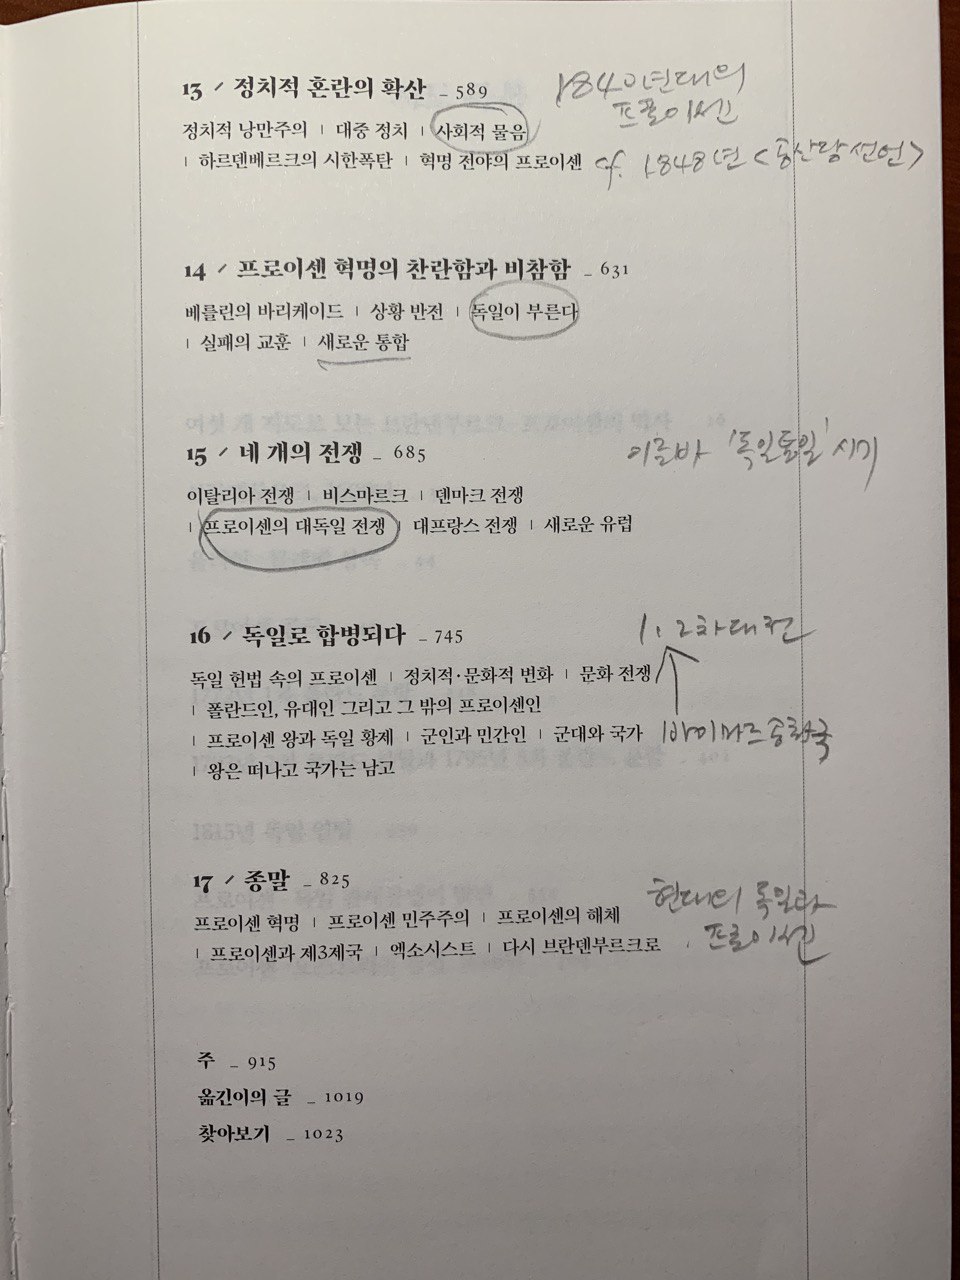 13 / 정치적 혼란의 확산 _ 589
1840년대의
프로이센
정치적 낭만주의 | 대중 정치 | 사회적 물음
| 하르덴베르크의 시한폭탄 | 혁명 전야의 프로이센
cf. 1848년 <공산당 선언>
14 / 프로이센 혁명의 찬란함과 비참함 _ 631
베를린의 바리케이드 | 상황 반전 | 독일이 부른다
| 실패의 교훈 | 새로운 통합
15 / 네 개의 전쟁 _ 685
이른바 '독일통일' 시기
이탈리아 전쟁 | 비스마르크 | 덴마크 전쟁
| 프로이센의 대독일 전쟁 | 대프랑스 전쟁 | 새로운 유럽
16 / 독일로 합병되다 _ 745
1, 2차대전
독일 헌법 속의 프로이센 | 정치적·문화적 변화 | 문화 전쟁
| 폴란드인, 유대인 그리고 그 밖의 프로이센인
| 프로이센 왕과 독일 황제 | 군인과 민간인 | 군대와 국가
바이마르 공화국
| 왕은 떠나고 국가는 남고
17 / 종말 _ 825
현대의 독일과
프로이센
프로이센 혁명 | 프로이센 민주주의 | 프로이센의 해체
| 프로이센과 제3제국 | 엑소시스트 | 다시 브란덴부르크로
주 _ 915
옮긴이의 글 _ 1019
찾아보기 _ 1023